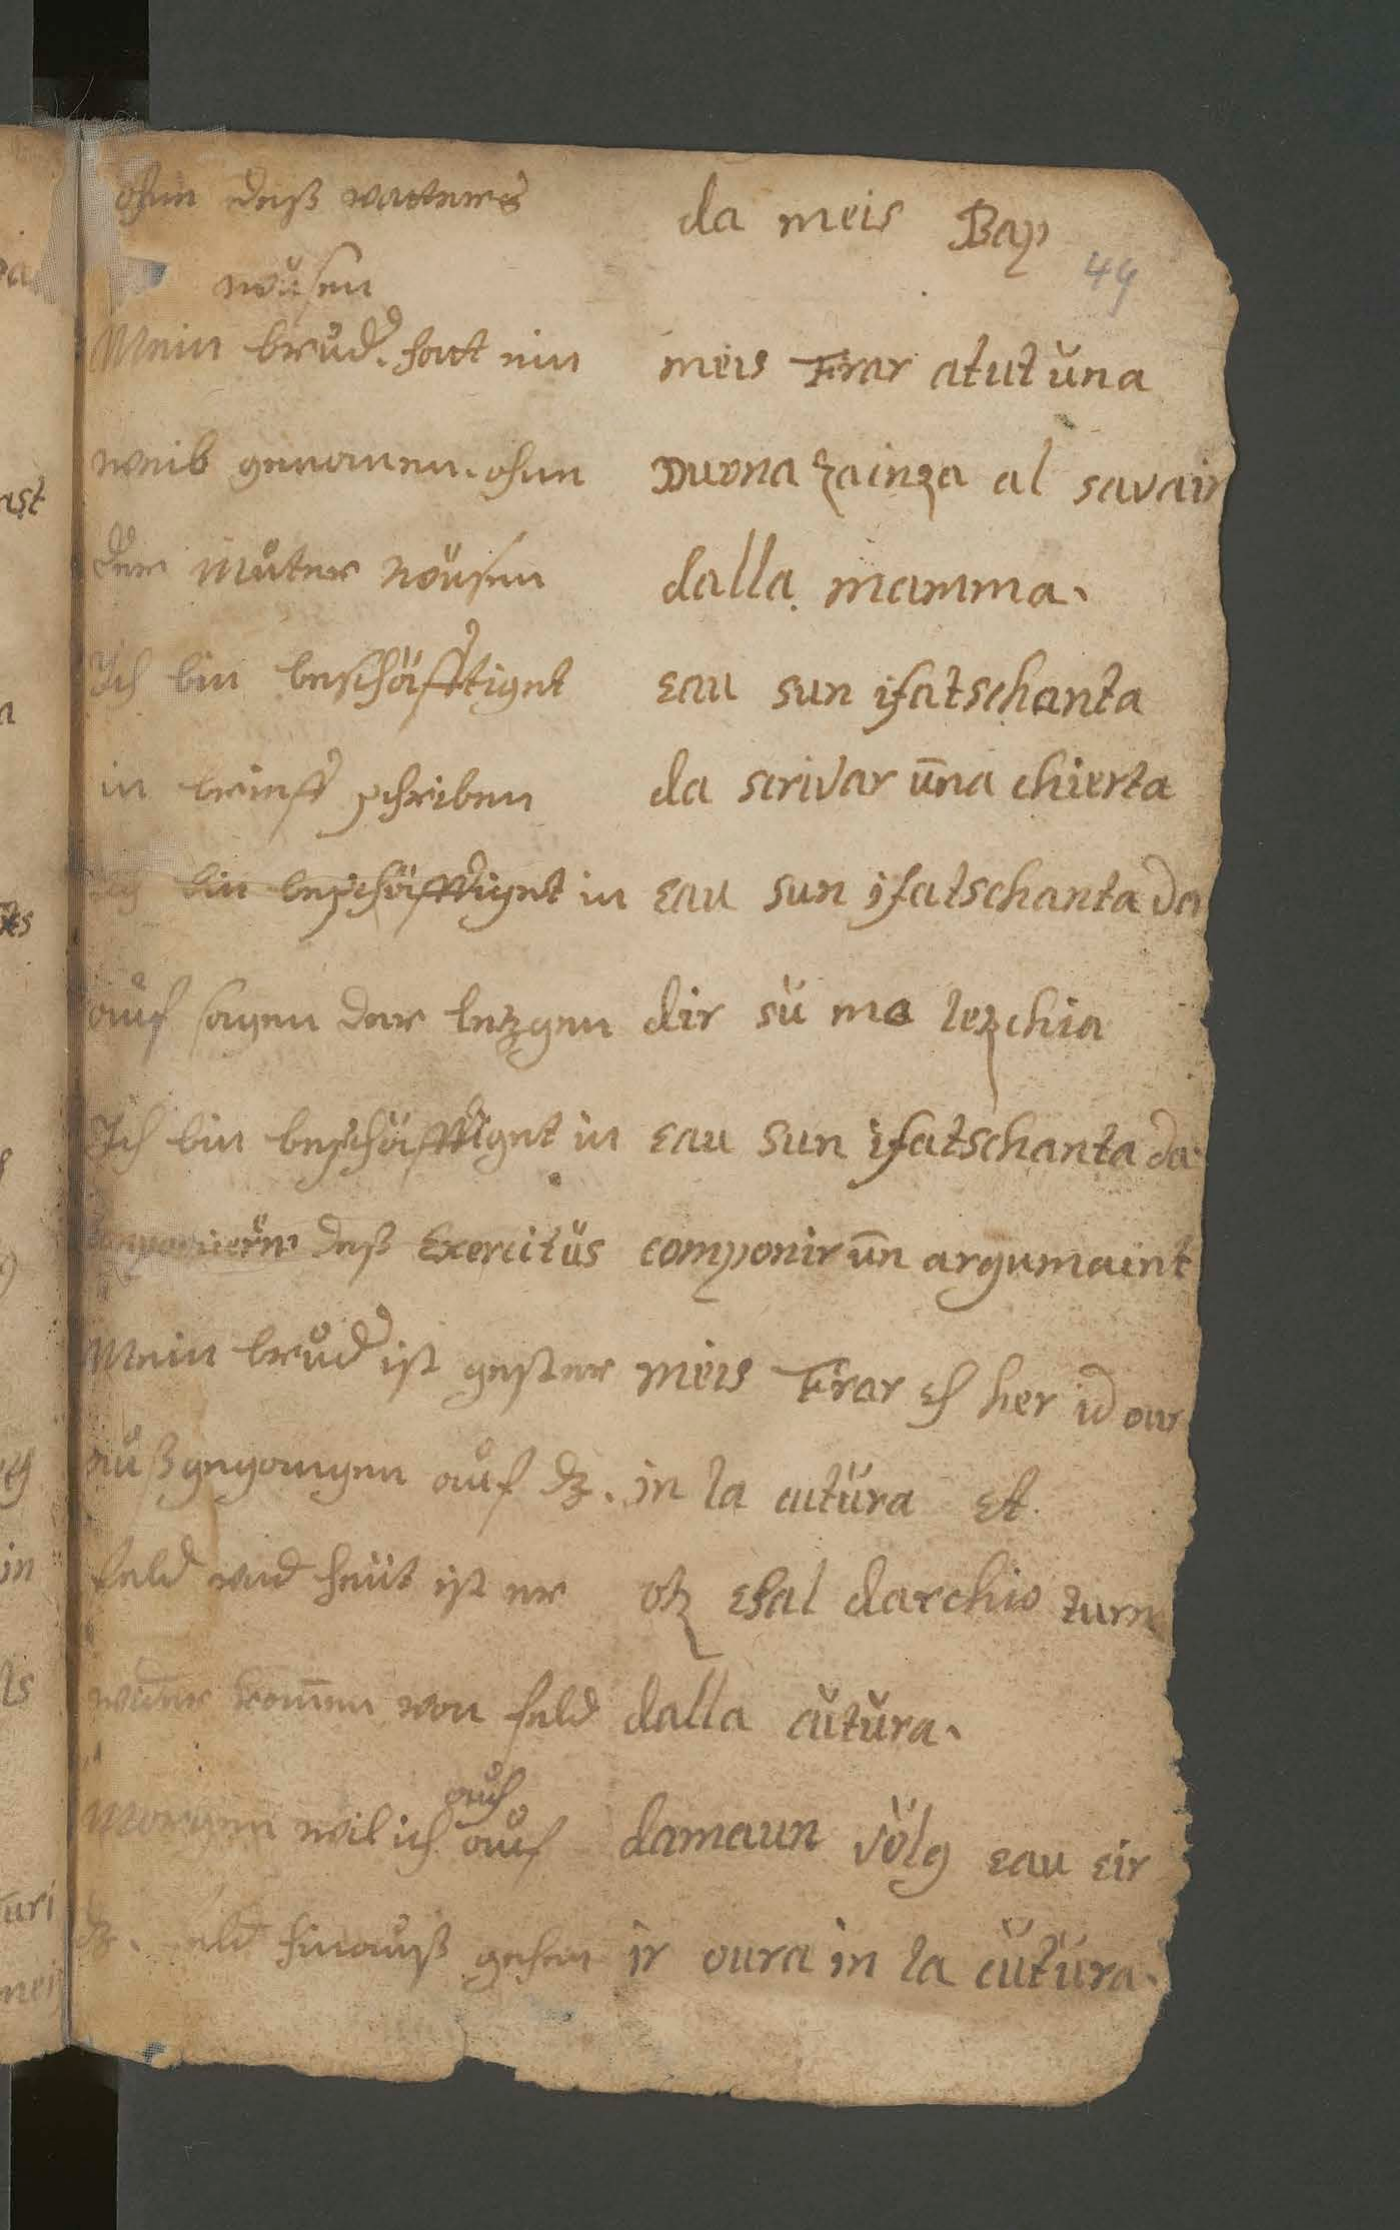 ohn deß vatters da meis Bap
49
wüsen
Mein brůd. hatt ein meis Frar atut ŭna
weib genomen. ohn Duona zainza al savair
der Můter wüsen dalla mamma.
Ich bin beschäfftiget eau sun ifatschanta
in brieff schriben da scrivar ūna chierta
Ich bin beschäfftiget in eau sun ifatschanta da
auf sagen der letzgen dir sü ma lezchia
Ich bin beschäfftiget in eau sun ifatschanta da
deß Exercitüs componir ūn argumaint
Mein brůd ist gester meis Frar es her id our
außgegangen auf dz. in la cutüra et
feld und heüt ist er oz esal darchio turn
wider komēn von feld dalla cŭtŭra.
auch
Morgen wil ich auf damaun völg eau eir
dz. feld hinauß gehen ir oura in la cütüra.